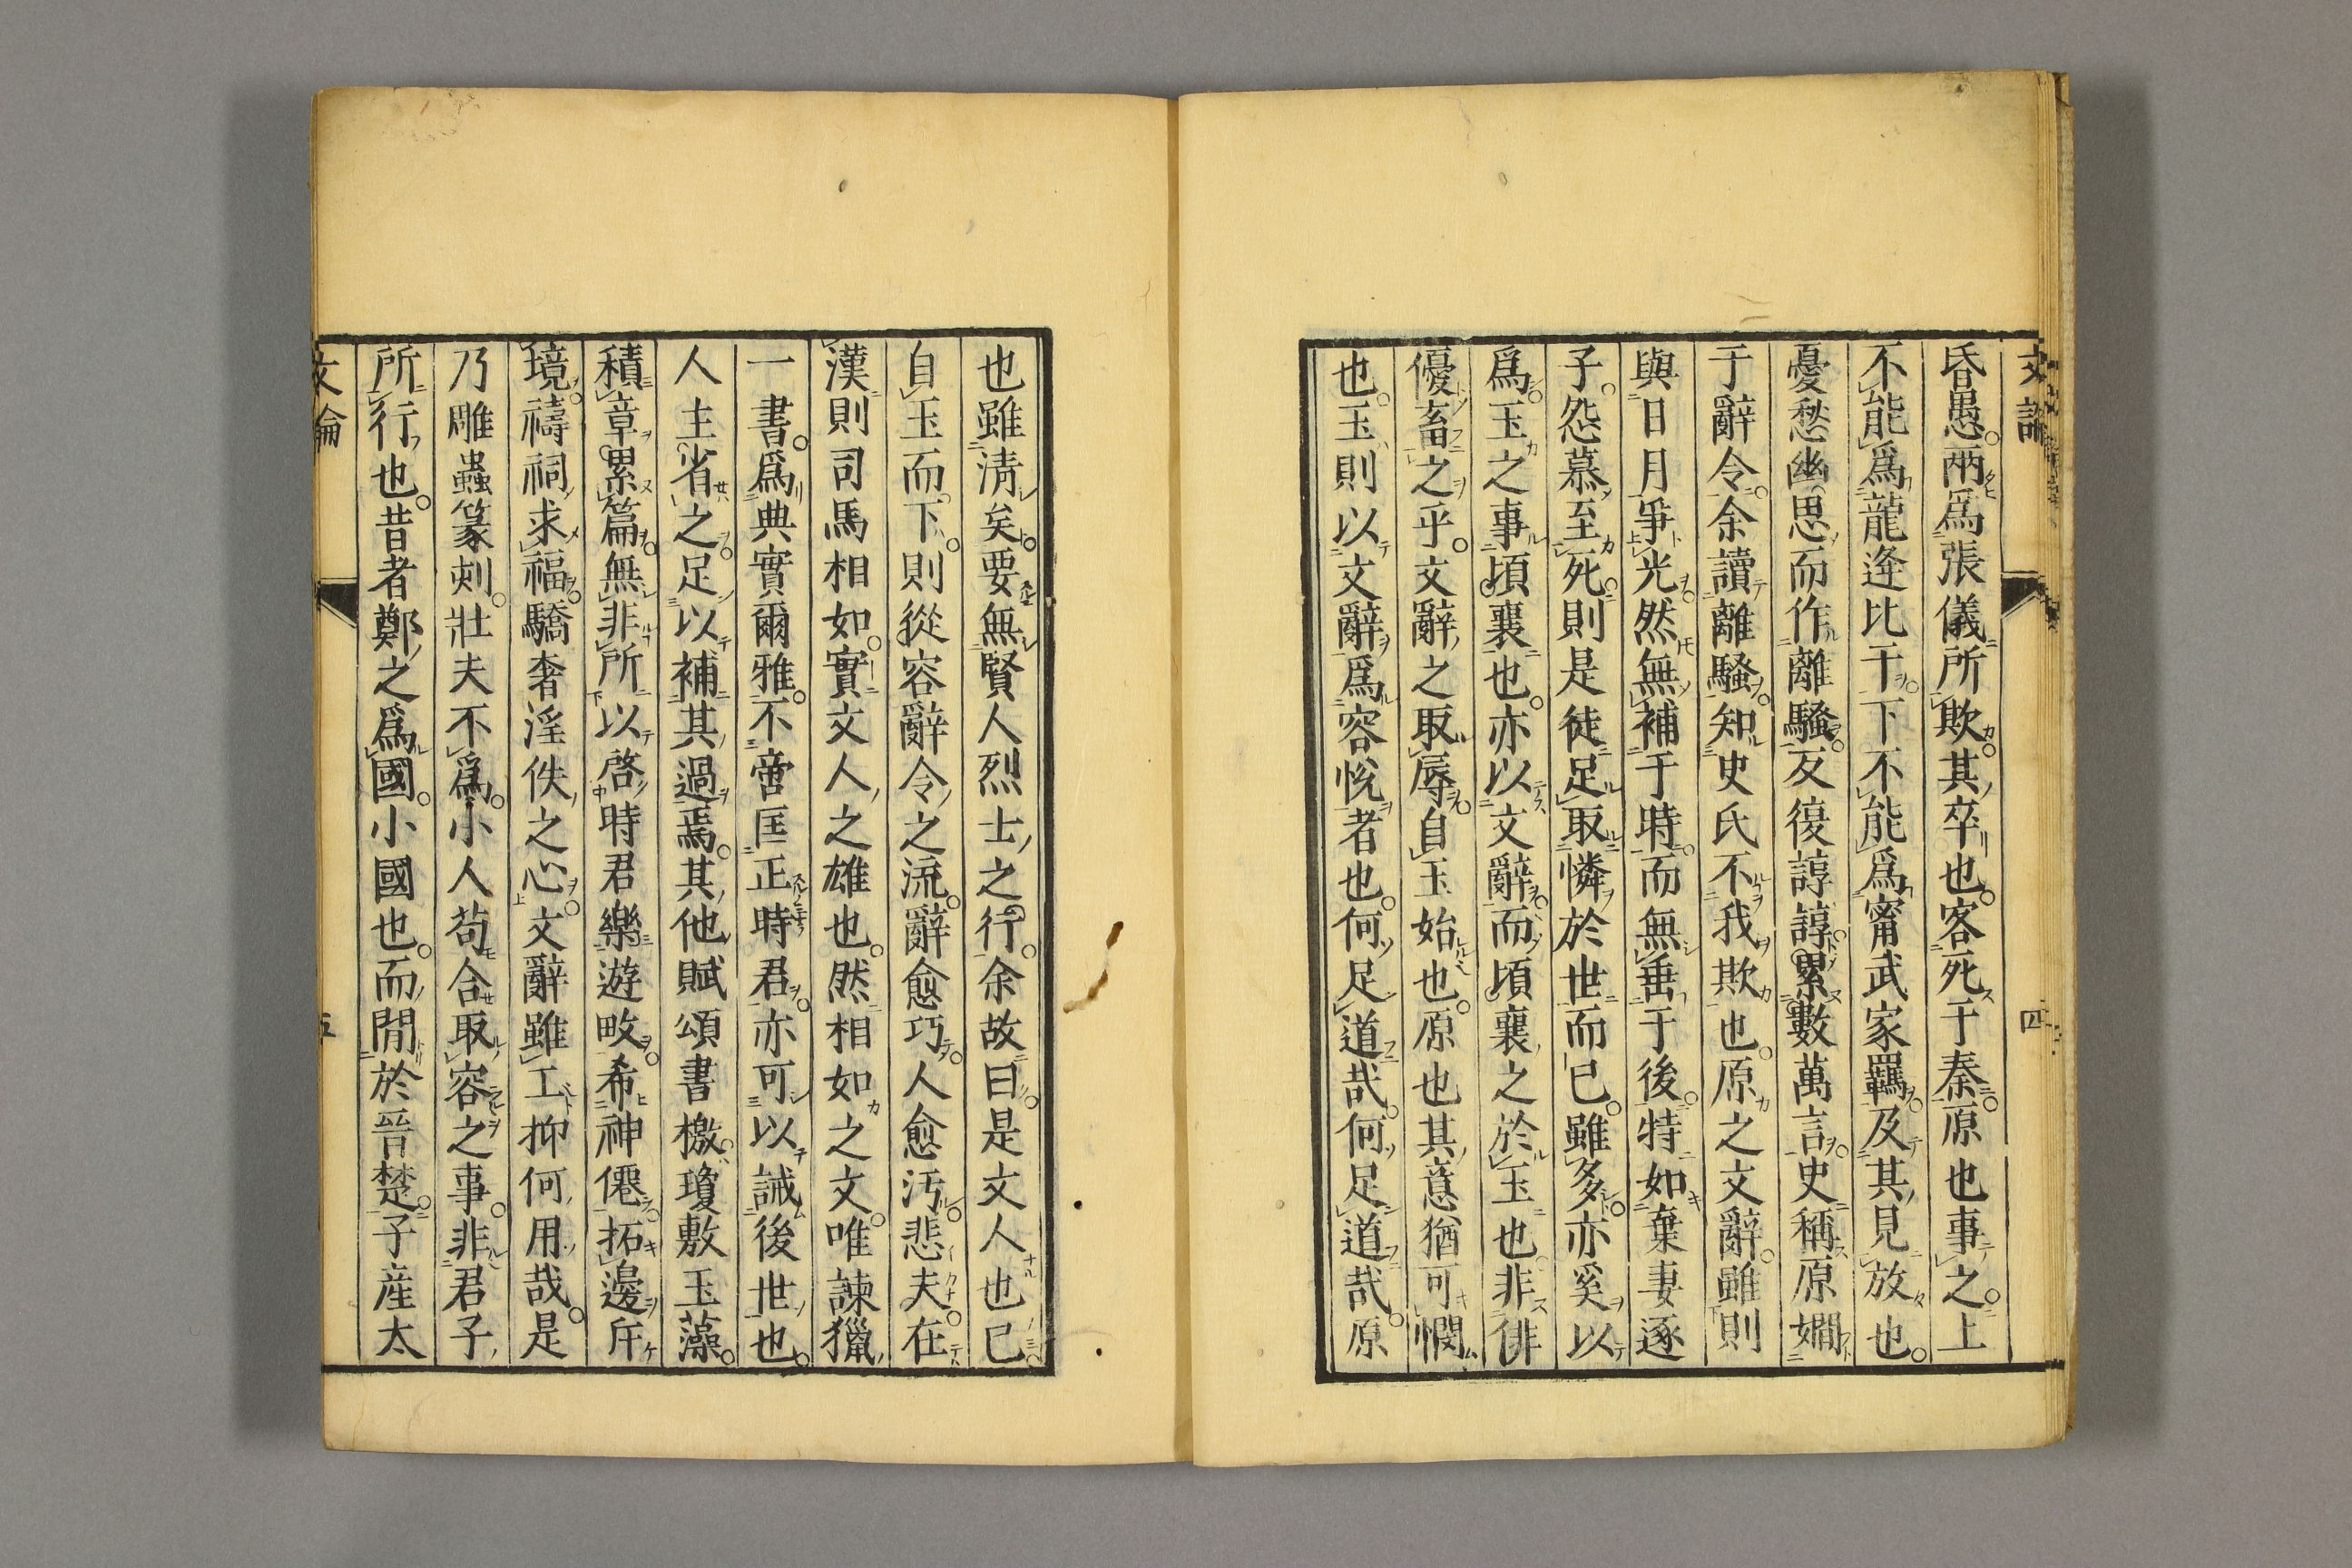 文論
四
昏愚。兩爲張儀所欺。其卒也。客死于秦。原也事之。上
不能爲龍逄比干。下不能爲甯武家羈。及其見放也。
憂愁幽思而作離騷。反復諄諄。累數萬言。史稱原嫺
于辭令。余讀離騷。知史氏不我欺也。原之文辭。雖則
與日月爭光。然無補于時。而無垂于後。特如棄妻逐
子。怨慕至死。則是徒足取憐於世而已。雖多。亦奚以
爲。玉之事頃襄也。亦以文辭。而頃襄之於玉也。非俳
優畜之乎。文辭之取辱。自玉始也。原也其意猶可憫
也。玉則以文辭爲容悅者也。何足道哉。何足道哉。原
也雖淸矣。要無賢人烈士之行。余故曰。是文人也已。
自玉而下。則從容辭令之流。辭愈巧。人愈汚。悲夫。在
漢則司馬相如。實文人之雄也。然相如之文。唯諫獵
一書。爲典實爾雅。不啻匡正時君。亦可以誡後世也。
人主省之。足以補其過焉。其他賦頌書檄。瓊敷玉藻。
積章累篇。無非所以啓時君樂遊畋。希神僊。拓邊斥
境。禱祠求福。驕奢淫佚之心。文辭雖工。抑何用哉。是
乃雕蟲篆刻。壯夫不爲。小人苟合取容之事。非君子
所行也。昔者鄭之爲國。小國也。而閒於晉楚。子産太
文論
五